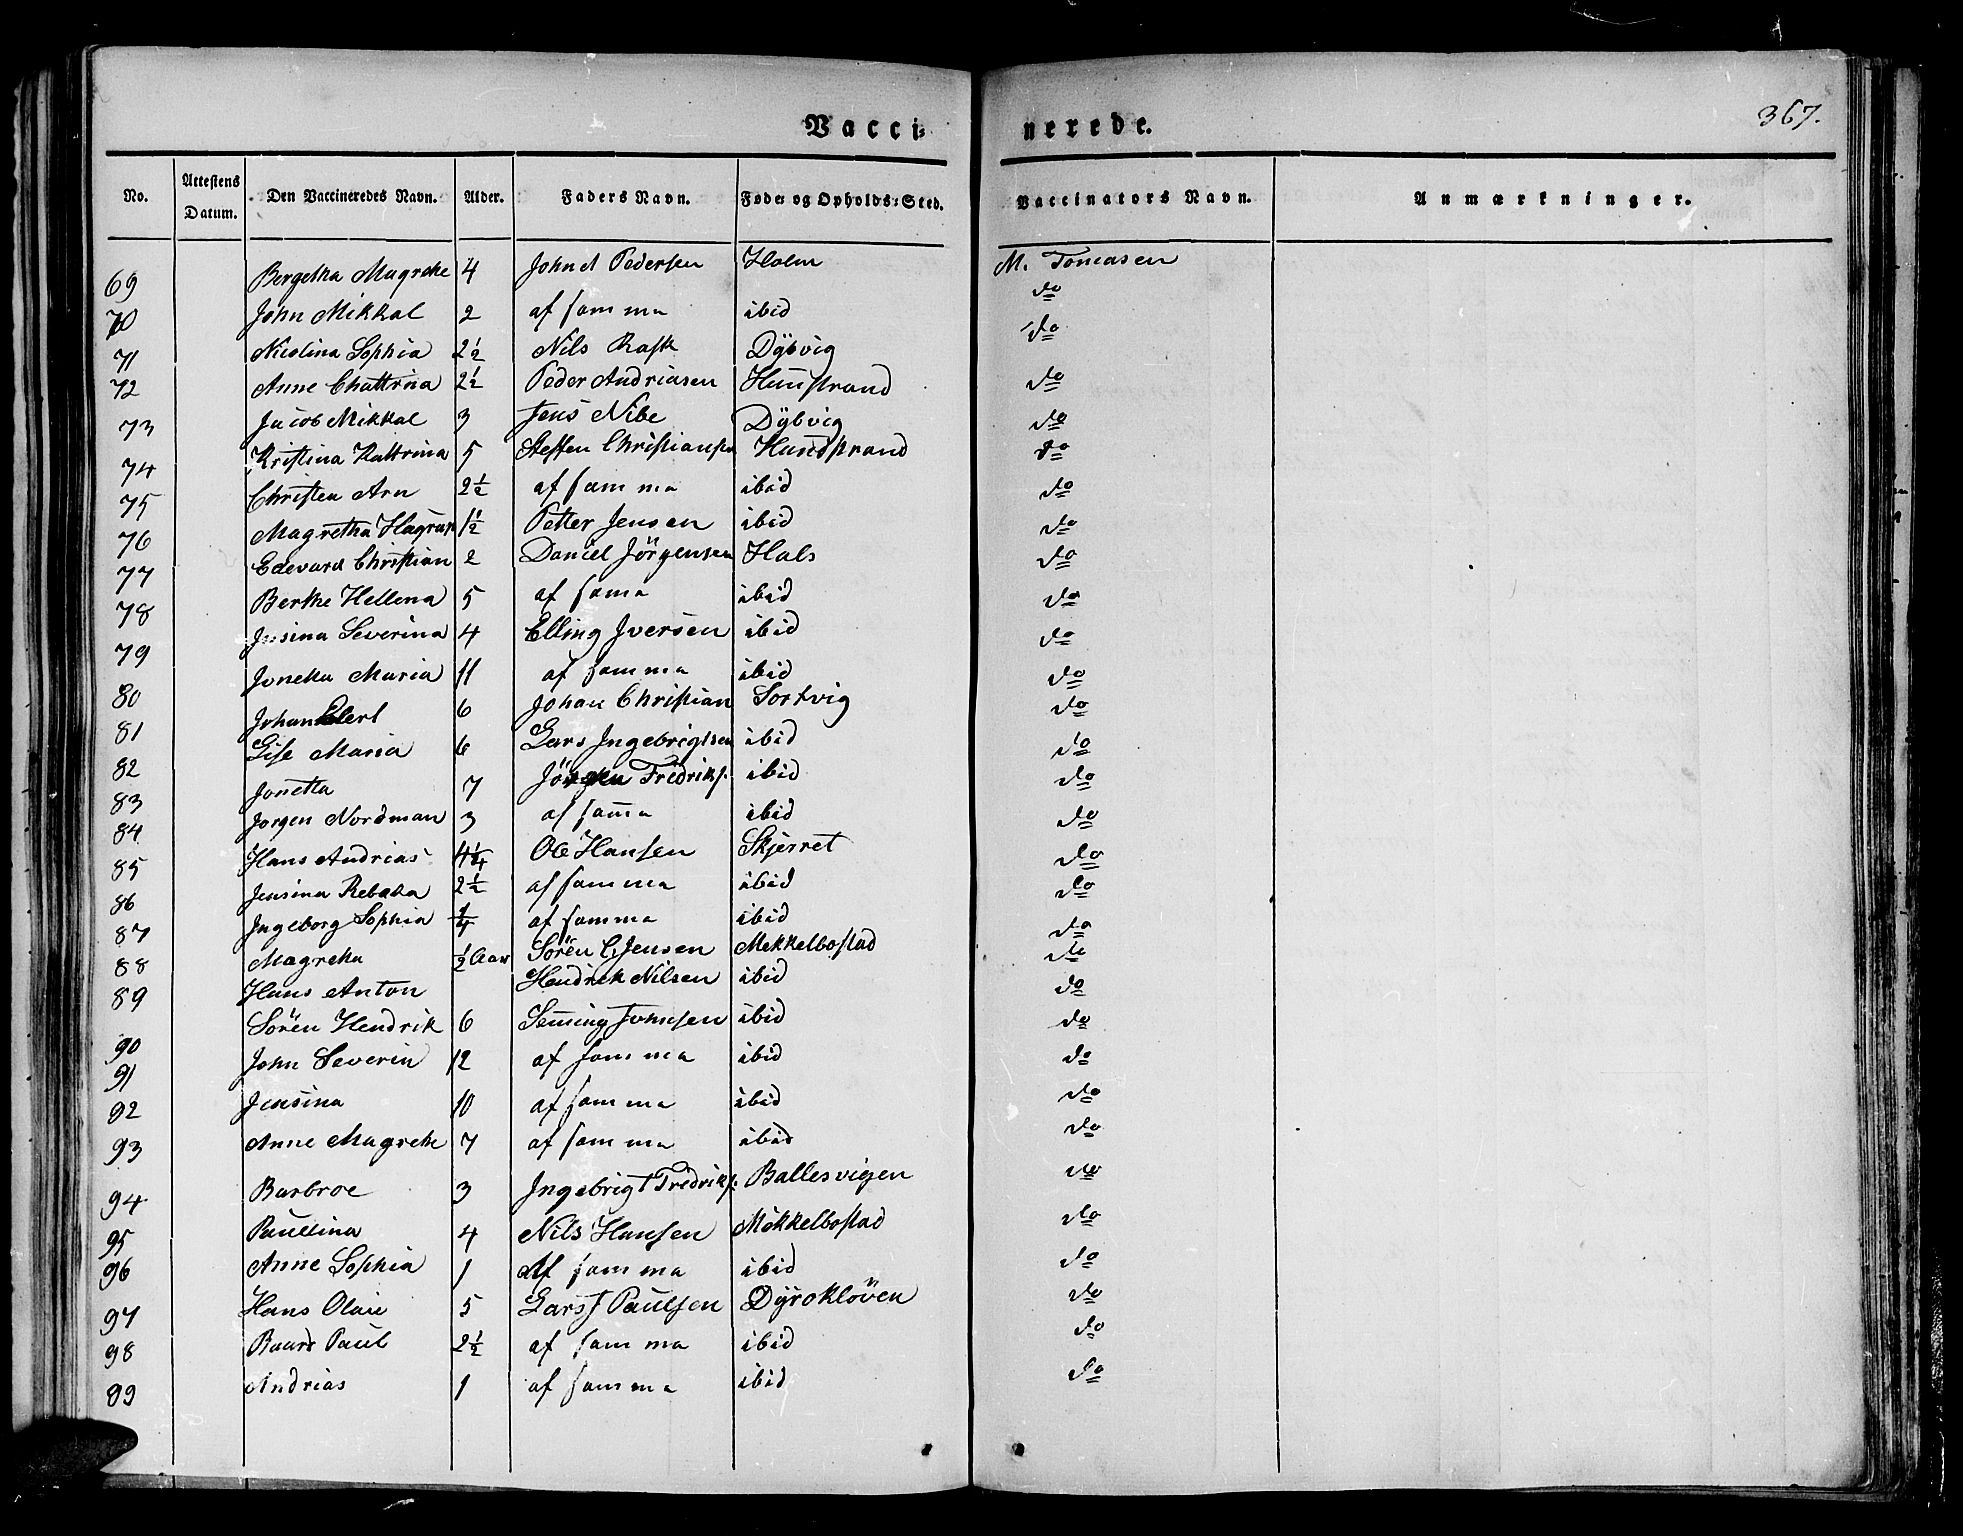 Vacci-
nerede.
367.
No.
Attestens Datum.
Den Vaccineredes Navn.
Alder.
Faders Navn.
Føde- og Opholds-Sted.
Vaccinators Navn.
Anmærkninger.
69 Bergetha Magrethe 4 John A Pedersen Holm M. Tomasen
70 John Mikkal 2 af samma ibid do
71 Nicolina Sophia 2½ Nils Rask Dÿbvig do
72 Anne Chattrina 2½ Peder Andriasen Hunstrand do
73 Jacob Mikkal 3 Jens Nibe Dÿbvig do
74 Kristina Kattrina 5 Steffen Christiansen Hundstrand do
75 Christen Arn 2½ af samma ibid do
76 Magretha Hagrup 1½ Petter Jensen ibid do
77 Edevard Christian 2 Daniel Jörgensen Hals do
78 Berthe Hellena 5 af sama ibid do
79 Jusina Severina 4 Elling Iversen ibid do
80 Jonetta Maria 11 af samma ibid do
81 Johan Elert 6 Johan Christian Sortvig do
82 Gise Maria 6 Lars Ingebrigtsen ibid do
83 Jonetta 7 Jörgen Fridriks: ibid do
84 Jorgen Nordman 3 af sam̄a ibid do
85 Hans Andrias 4¼ Ole Hansen Skjerret do
86 Jensina Rebaka 2½ af samma ibid do
87 Ingeborg Sophia ¼ af samma ibid do
88 Magretha ½ Aar Sörën C Jensen Mekkelbostad do
89 Hans Anton Hendrik Nilsen ibid do
90 Sörën Hendrik 6 Sem̄ing Johnsen ibid do
91 John Severin 12 af samma ibid do
92 Jensina 10 af samma ibid do
93 Anne Magrethe 7 af samma ibid do
94 Barbroe 3 Ingebrigt Fredriks: Ballesvigen do
95 Paulina 4 Nils Hansen Mökkelbostad do
96 Anne Sophia 1 Af samma ibid do
97 Hans Olau 5 Lars J Paulsen Dÿroklöven do
98 Baard Paul 2½ af samma ibid do
89 Andrias 1 af samma ibid do